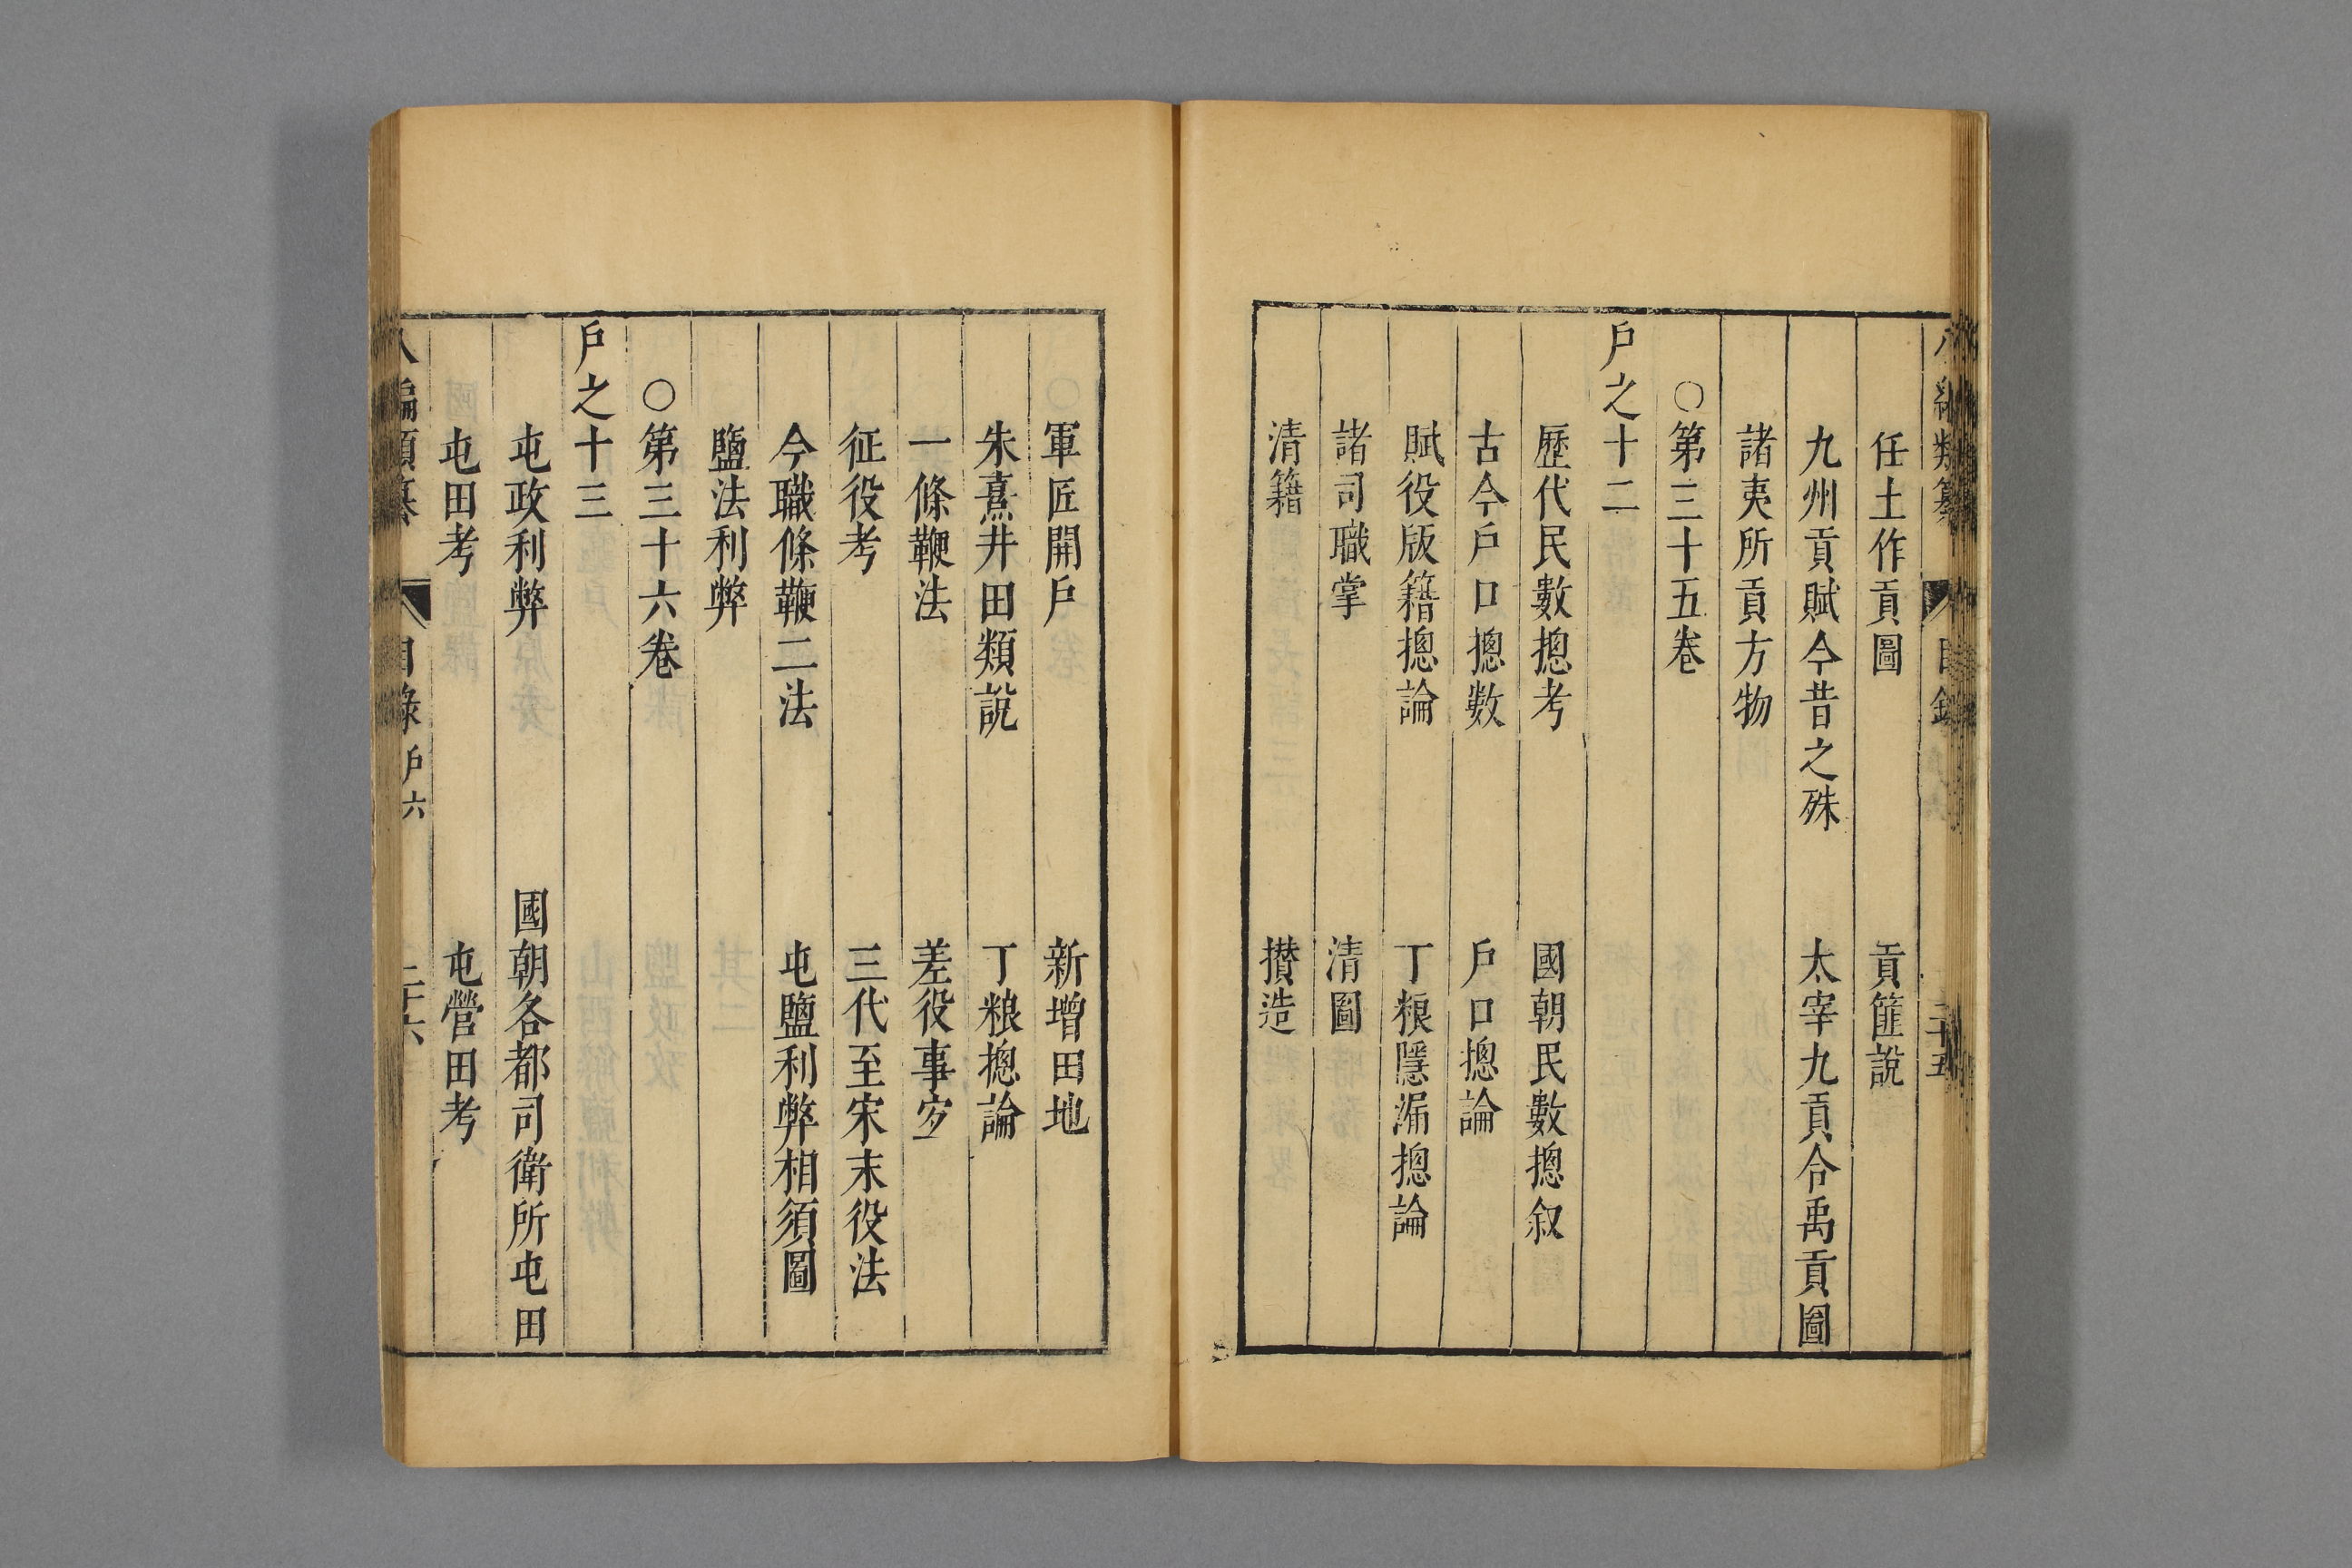 任土作貢圖　貢篚說
九州貢賦今昔之殊　太宰九貢合禹貢圖
諸夷所貢方物
○第三十五卷
戶之十二
歷代民數摠考　國朝民數摠叙
古今戶口摠數　戶口摠論
賦役版籍摠論　丁粮隱漏摠論
諸司職掌　清圖
清籍　攅造
軍匠開戶　新增田地
朱熹井田類說　丁粮摠論
一條鞭法　差役事宜
征役考　三代至宋末役法
今職條鞭二法　屯鹽利弊相須圖
鹽法利弊
○第三十六卷
戶之十三
屯政利弊　國朝各都司衛所屯田
屯田考　屯營田考
八編類纂　目錄　戶六　二十六